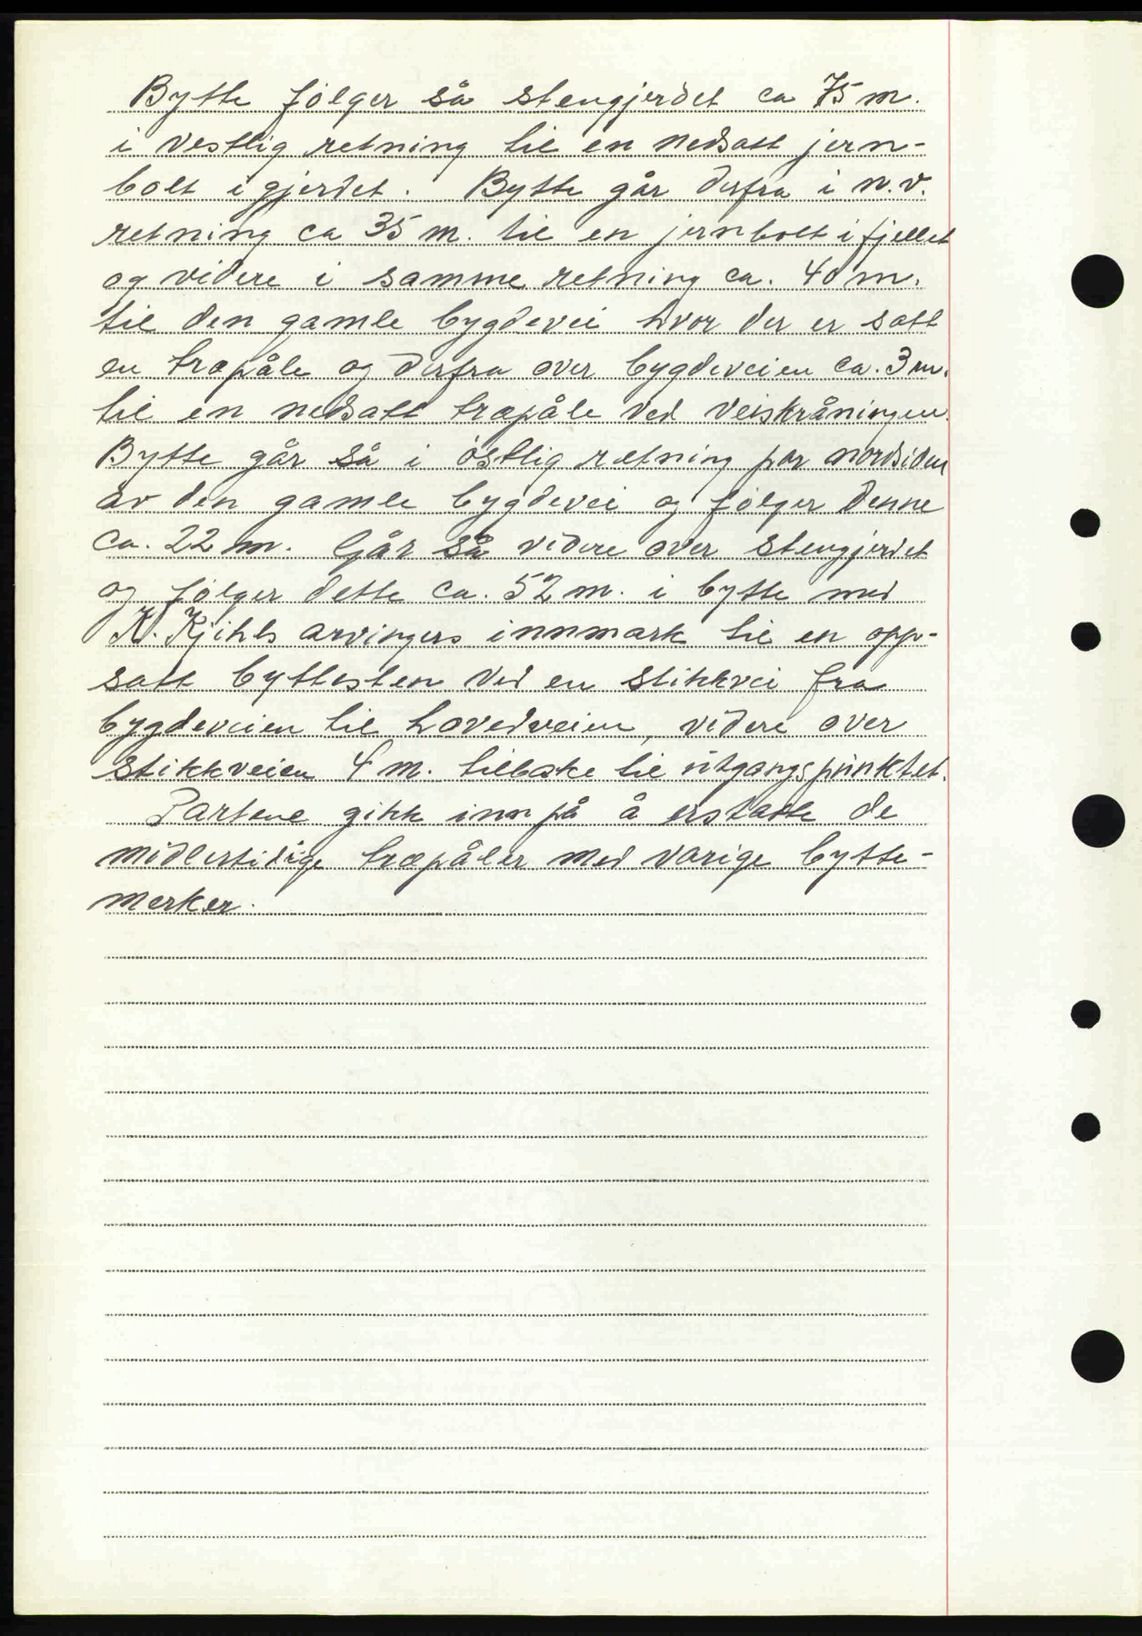 Bytte følger så stengjerdet ca 75 m.
i vestlig retning til en nedsatt jern-
bolt i gjerdet. Bytte går derfra i n.v.
retning ca 35 m. til en jernbolt i fjellet
og videre i samme retning ca. 40 m.
til den gamle bygdevei hvor der er satt
en træpåle og derfra over bygdeveien ca. 3 m.
til en nedsatt træpåle ved veiskråningen.
Bytte går så i østlig retning på nordsiden
av den gamle bygdevei og følger denne
ca. 22 m. Går så videre over stengjerdet
og følger dette ca. 52 m. i bytte med
K. Kjihls arvingers innmark til en opp-
satt byttesten ved en stikkvei fra
bygdeveien til hovedveien, videre over
stikkveien 4 m. tilbake til utgangspunktet.
Partene gikk inn på å erstatte de
midlertidige træpåler med varige bytte-
merker.